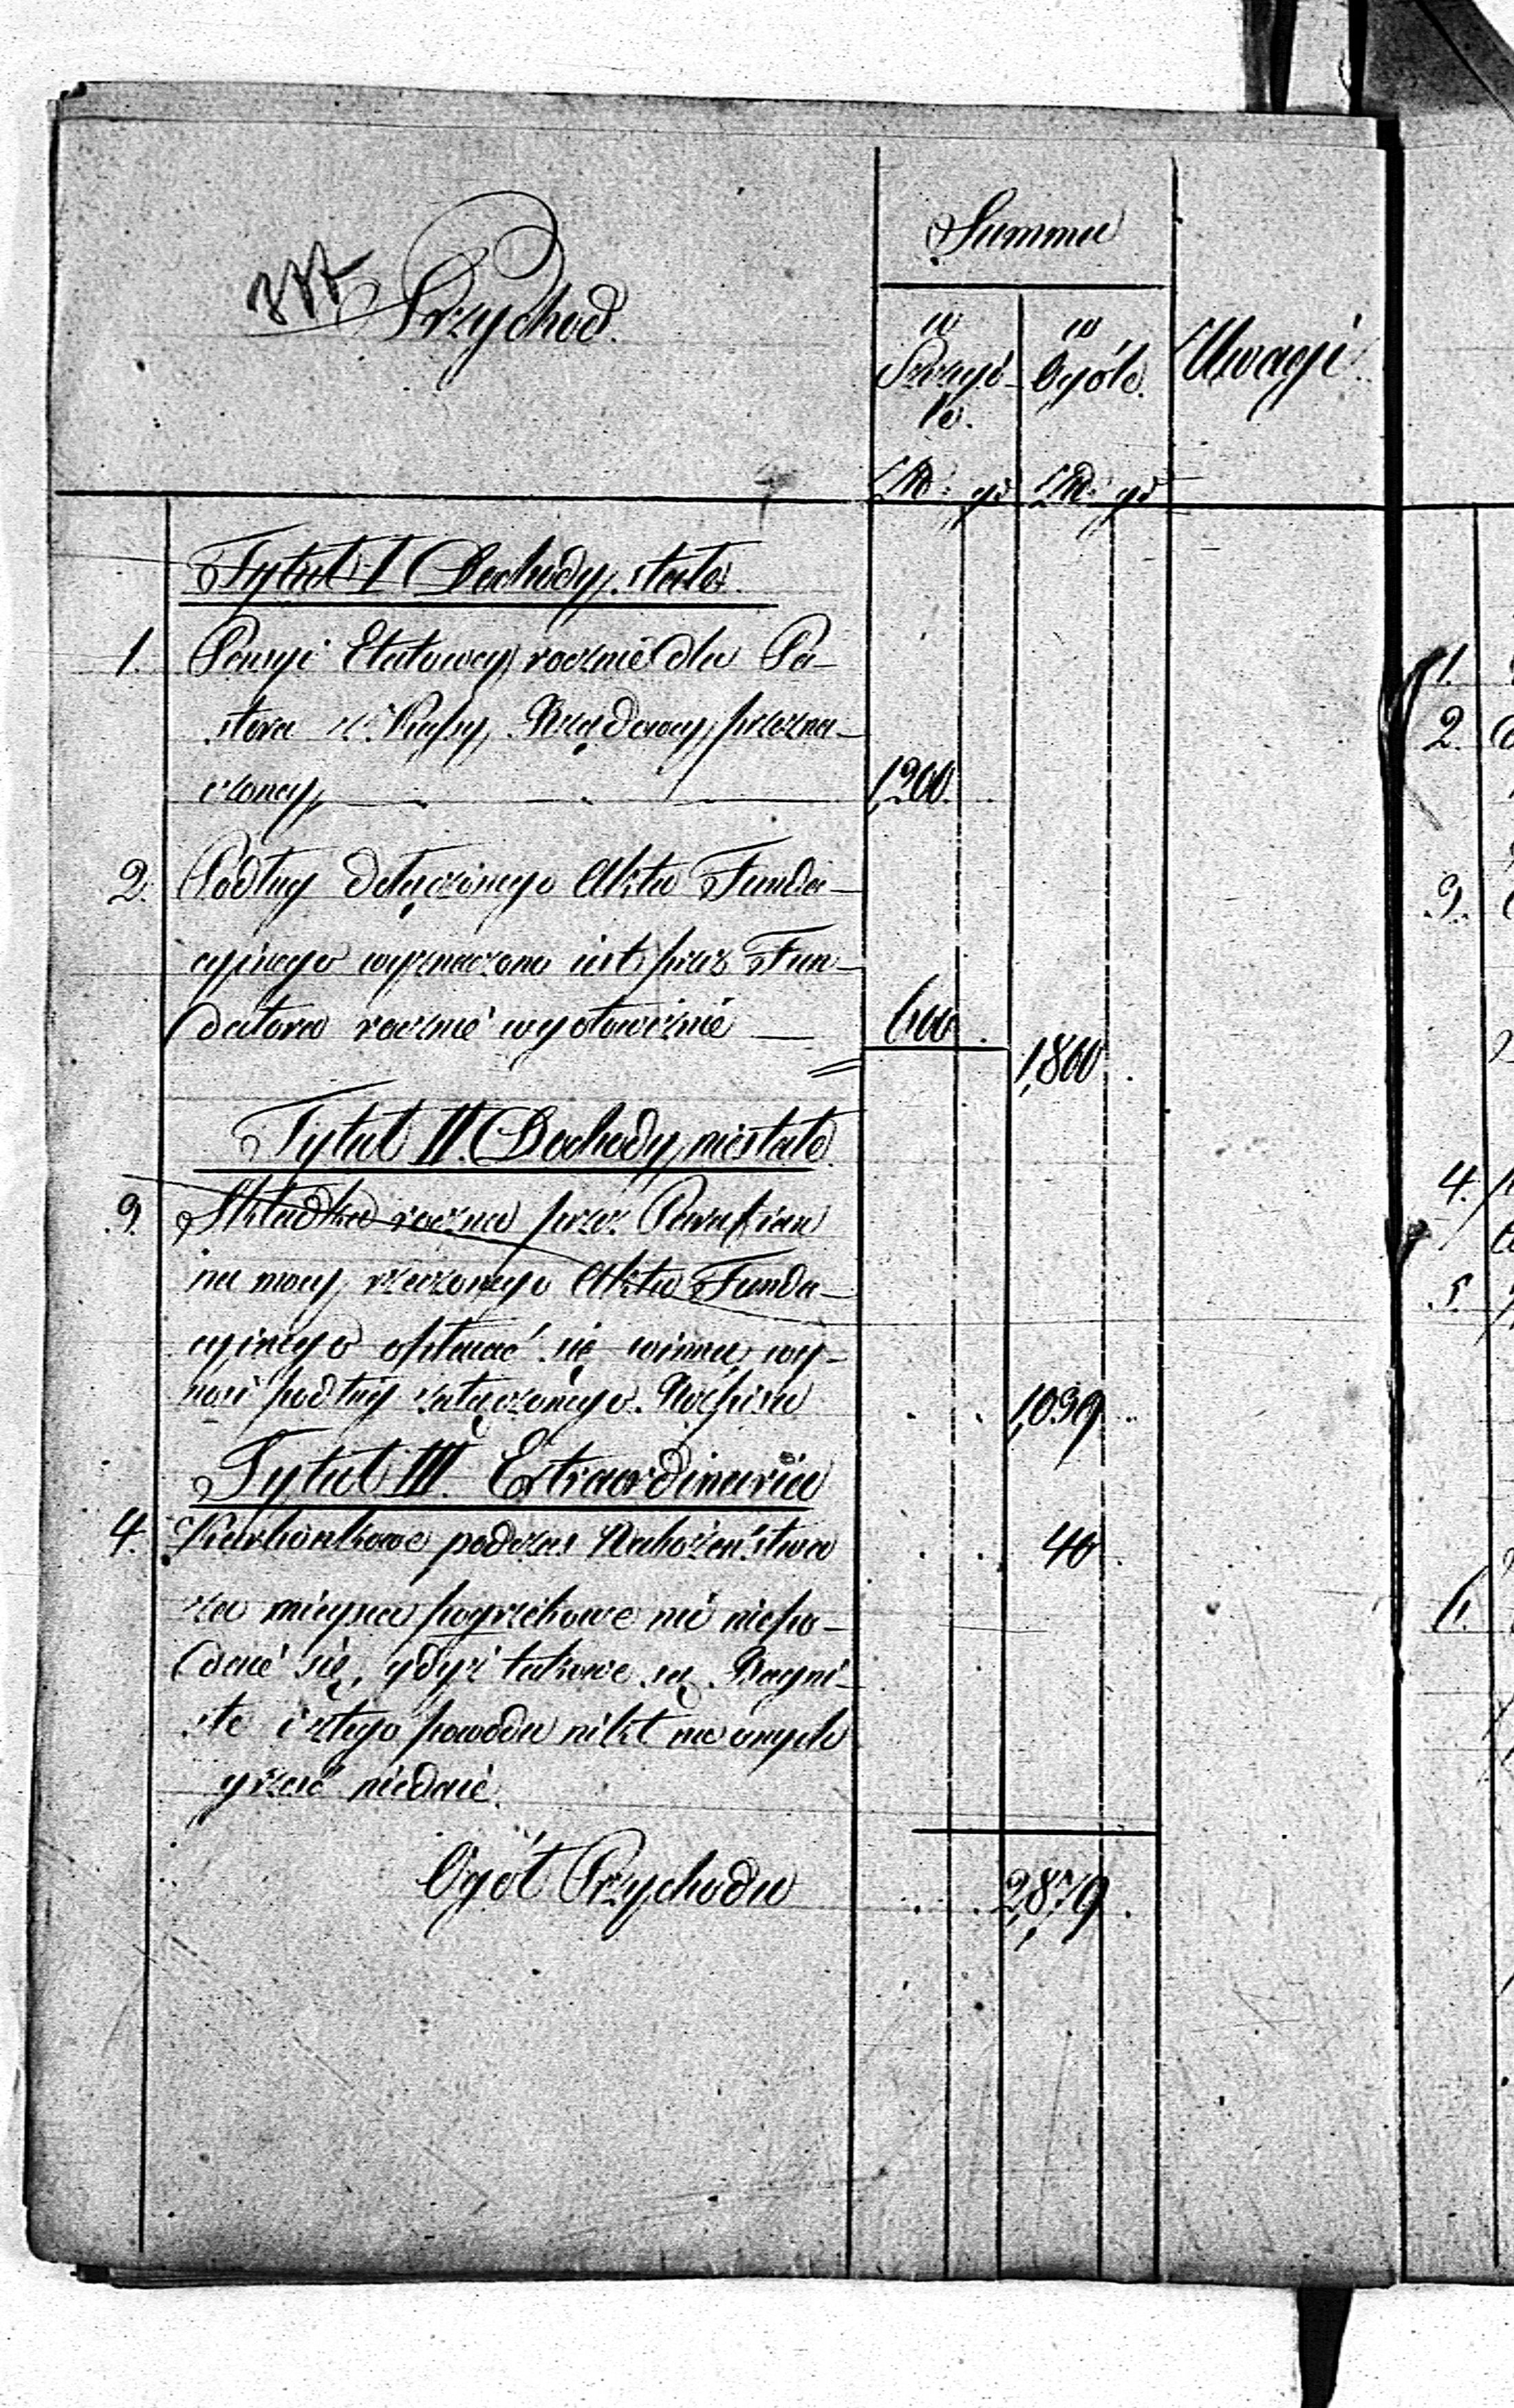 Przychod.
Summa
w Szczegó-
le.
w Ogóle.
Uwagi
Złł: gr Złł: gr
Tytuł I Dochody stałe.
1. Pensyi Etatowey rocznie dla Pa-
stora z Kassy Rządowey przezna-
czoney 1,200.
2. Podług dołączonego Aktu Funda-
cyjnego wyznaczono iest przez Fun-
datora rocznie wyotowicznie 600.
1,800.
Tytuł II. Dochody niestałe
3. Składka roczna przez Parafian
na mocy rzeczonego Aktu Funda-
cyjnego opłacać się winna, wy-
nosi podług załączonego Rospisu 1,039
Tytuł III. Extraordinaria
4. Karbonkowe podczas Nabożeństwa 40
za mieysca pogrzebowe nie niepo-
daie się, gdyż takowe są
i z tego powodu nikt na onych
grześć niedaie.
Ogół Przychodu 2,879.
1.
2.
3.
4.
5.
6.